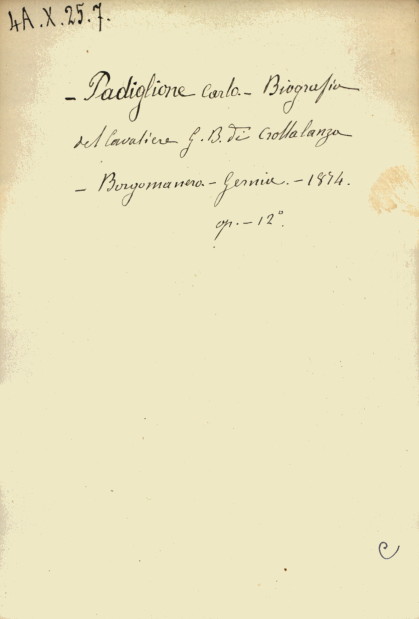 4A.X.25.7.
- Padiglione Carlo.- Biografia
del Cavaliere G. B. di Crollalanza
- Borgomanero.- Gernia.- 1874.
op.- 12°.
C